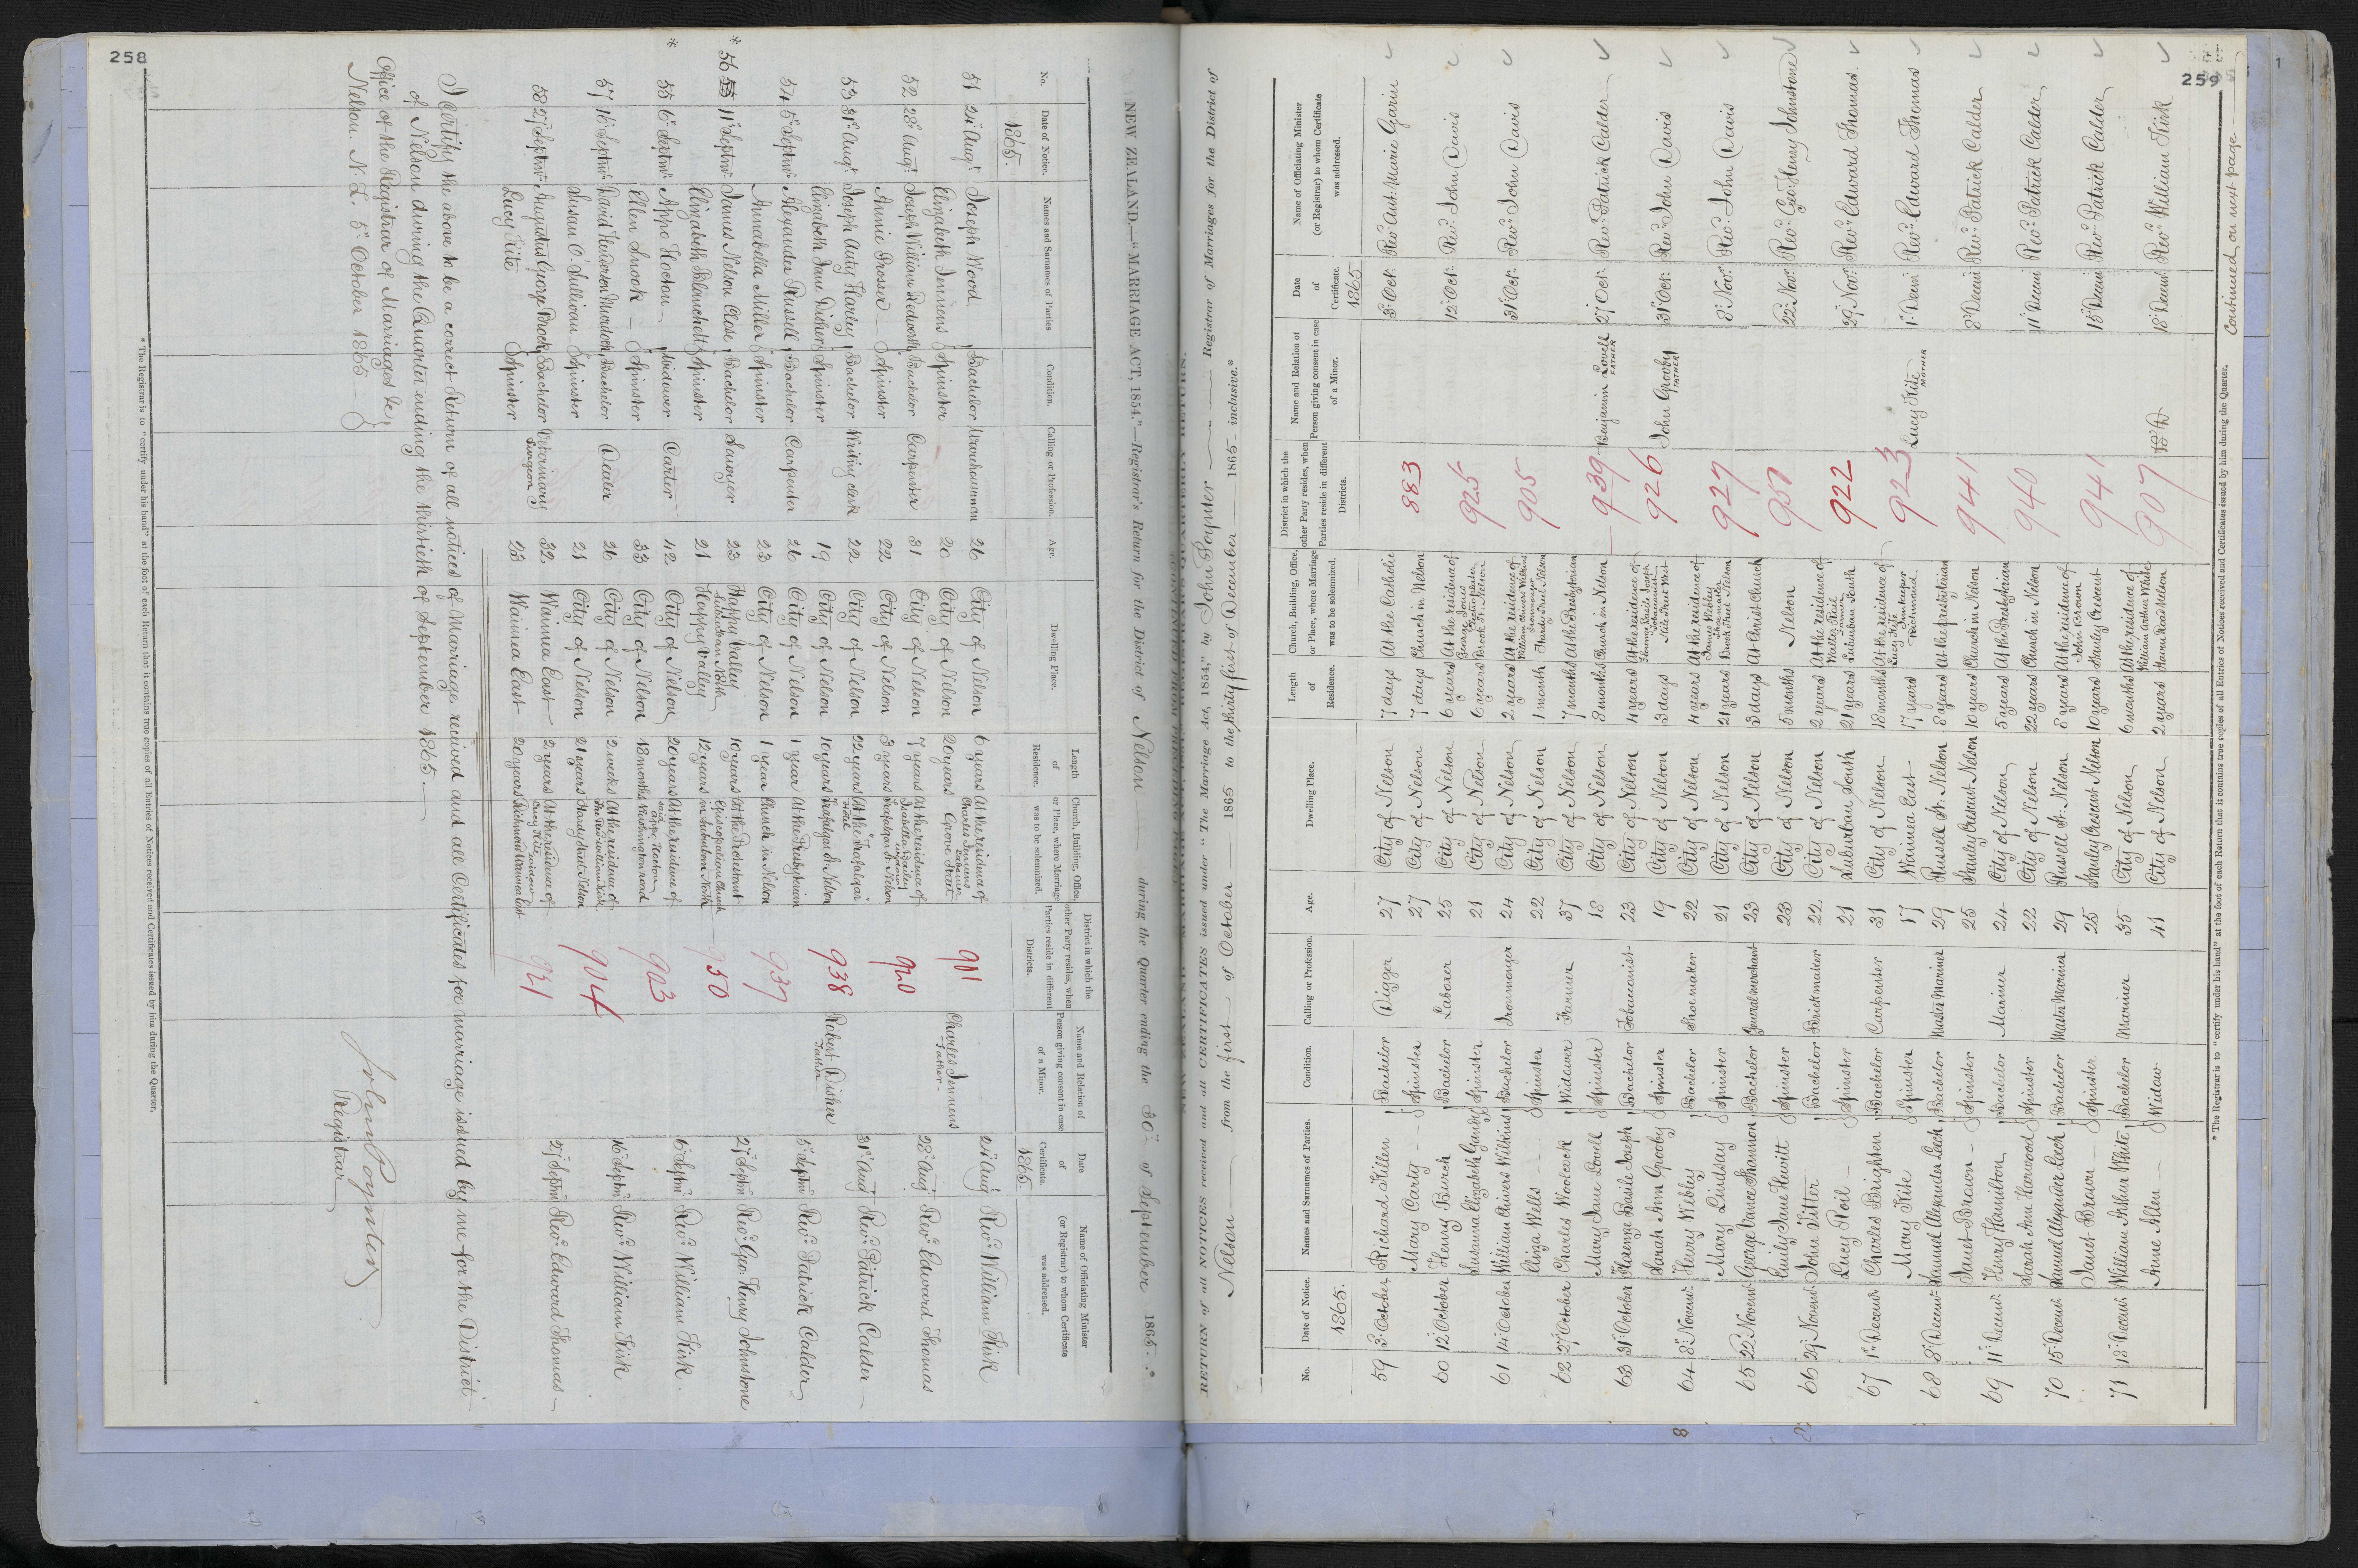 258
NEW ZEALAND.—"MARRIAGE ACT, 1854."—Registrar's Return for the District of Nelson during the Quarter ending the 30th of September 1865.*
No. Date of Notice. Names and Surnames of Parties. Condition. Calling or Profession. Age. Dwelling Place. Length of Residence. Church, Building, Office, or Place, where Marriage was to be solemnized. District in which the other Party resides, when Parties reside in different Districts. Name and Relation of Person giving consent in case of a Minor. Date of Certificate. Name of Officiating Minister (or Registrar) to whom Certificate was addressed.
1865. 1865.
51 24th Augt Joseph Wood Bachelor Warehouseman 26 City of Nelson 6 years At the residence of Charles Jennens Labourer 901 24th Aug Revd William Kirk
Elizabeth Jennens Spinster 20 City of Nelson 20 years Grove Street Charles Jennens Father
52 28th Augt Joseph William Bachelor Carpenter 31 City of Nelson 7 years At the residence of Isabella Bailey widow 920 28th Aug Revd Edward Thomas
Annie Prosser Spinster 22 City of Nelson 3 years Trafalgar St. Nelson
53 31st Augt Joseph Auty Harley Bachelor Writing clerk 22 City of Nelson 22 years At the "Trafalgar" Hotel 938 31st Aug Revd Patrick Calder
Elizabeth Jane Disher Spinster 19 City of Nelson 10 years Trafalgar St. Nelson Robert Disher Father
54 5th Septmr Alexander Russell Bachelor Carpenter 26 City of Nelson 1 year At the Presbyterian 937 5th Septmr Revd Patrick Calder
Annabella Miller Spinster 23 City of Nelson 1 year Church in Nelson
* 56 55 11th Septmr James Nelson Close Bachelor Sawyer 23 Happy Valley Suburban North 10 years At the Protestant Episcopalian Church 950 27th Septmr Revd Geo: Henry Johnstone
Elizabeth Blanchett Spinster 21 Happy Valley 12 years in Suburban North
* 55 6th Septmr Appo Hocton Widower Carter 42 City of Nelson 20 years At the residence of said Appo Hocton 903 6th Septmr Revd William Kirk.
Ellen Snook Spinster 33 City of Nelson 18 months Washington road
57 16th Septmr David Henderson Murdoch Bachelor Dealer 26 City of Nelson 2 weeks At the residence of The Revd William Kirk 904 16th Septmr Revd William Kirk
Susan O. Sullivan Spinster 21 City of Nelson 21 years Hardy Street Nelson
58 27th Septmr Augustus George Brock Bachelor Veterinary Surgeon 32 Waimea East 2 years At the residence of Lucy Kite widow 921 27th Septmr Revd Edward Thomas
Lucy Kite Spinster 23 Waimea East 20 years Richmond Waimea East
I Certify the above to be a correct Return of all notices of Marriage received and all Certificates for marriage issued by me for the District
of Nelson during the Quarter ending the thirtieth of September 1865.
Office of the Registrar of Marriages &c
Nelson. N.Z. 5th October 1865
John Poynter
Registrar
* The Registrar is to "certify under his hand" at the foot of each Return that it contains true copies of all Entries of Notices received and Certificates issued by him during the Quarter.
259
RETURN of all NOTICES received and all CERTIFICATES issued under "The Marriage Act, 1854," by John Poynter Registrar of Marriages for the District of
Nelson from the first of October 1865 to the thirty first of December 1865 inclusive.*
No. Date of Notice. Names and Surnames of Parties. Condition. Calling or Profession. Age. Dwelling Place. Length of Residence. Church, Building, Office, or Place, where Marriage was to be solemnized. District in which the other Party resides, when Parties reside in different Districts. Name and Relation of Person giving consent in case of a Minor. Date of Certificate. Name of Officiating Minister (or Registrar) to whom Certificate was addressed.
1865. 1865
59 3rd October Richard Killen Bachelor Digger 27 City of Nelson 7 days At the Catholic 883 3rd Oct: Revd Ant: Marie Garin
Mary Carty Spinster 27 City of Nelson 7 days Church in Nelson
60 12th October Henry Burch Bachelor Laborer 25 City of Nelson 6 years At the residence of George Jones 925 12th Oct: Revd John Davis
Susanna Elizabeth Gandy Spinster 21 City of Nelson 6 years Brook St. Nelson
61 14th October William Chivers Wilkins Bachelor Ironmonger 24 City of Nelson 2 years At the residence of William Chivers Wilkins Ironmonger 905 31st Oct: Revd John Davis
Eliza Wells Spinster 22 City of Nelson 1 month Hardy Street Nelson
62 27th October Charles Woolcock Widower Farmer 37 City of Nelson 7 months At the Presbyterian 939 Benjamin Lovell FATHER 27th Oct: Revd Patrick Calder
Mary Jane Lovell Spinster 18 City of Nelson 8 months Church in Nelson
63 31st October Florange Basile Joseph Bachelor Tobacconist 23 City of Nelson 4 years At the residence of Florange Basile Joseph Tobacconist 926 John Grooby FATHER 31st Oct: Revd John Davis
Sarah Ann Grooby Spinster 19 City of Nelson 3 days Nile Street West
64 8th Novemr Henry Webley Bachelor Shoemaker 22 City of Nelson 4 years At the residence of James Webley Shoemaker 927 8th Novr Revd John Davis
Mary Lindsay Spinster 21 City of Nelson 21 years Brook Street Nelson
65 22nd Novemr George Vance Shannon Bachelor General merchant 23 City of Nelson 3 days At Christ Church 22nd Novr Revd Geo: Henry Johnstone
Emily Jane Hewitt Spinster 23 City of Nelson 5 months Nelson
66 29th Novemr John Titter Bachelor Brickmaker 22 City of Nelson 2 years At the residence of Walter Roil Farmer 922 29th Novr Revd Edward Thomas.
Lucy Roil Spinster 21 Suburban South 21 years Suburban South
67 1st Decemr Charles Brighten Bachelor Carpenter 31 City of Nelson 18 months At the residence of Lucy Kite Innkeeper 923 Lucy Kite MOTHER 1st Decmr Revd Edward Thomas
Mary Kite Spinster 17 Waimea East 17 years Richmond
68 8th Decemr Samuel Alexander Leech Bachelor Master Mariner 29 Russell St. Nelson 8 years At the presbyterian 941 8th Decmr Revd Patrick Calder
Janet Brown Spinster 25 Stanley Crescent Nelson 10 years Church in Nelson
69 11th Decemr Henry Hamilton Bachelor Mariner 24 City of Nelson 5 years At the Presbyterian 940 11th Decmr Revd Patrick Calder
Sarah Anne Harwood Spinster 22 City of Nelson 22 years Church in Nelson
70 15th Decemr Samuel Alexander Leech Bachelor Master Mariner 29 Russell St. Nelson 8 years At the residence of John Brown 941 15th Decmr Revd Patrick Calder
Janet Brown Spinster 25 Stanley Crescent Nelson 10 years Stanley Crescent
71 18th Decemr William Arthur White Bachelor Mariner 35 City of Nelson 6 months At the residence of William Arthur White 907 18th Decmr Revd William Kirk
Anne Allen Widow 41 City of Nelson 2 years Haven Road Nelson
Continued on next page
* The Registrar is to "certify under his hand" at the foot of each Return that it contains true copies of all Entries of Notices received and Certificates issued by him during the Quarter.